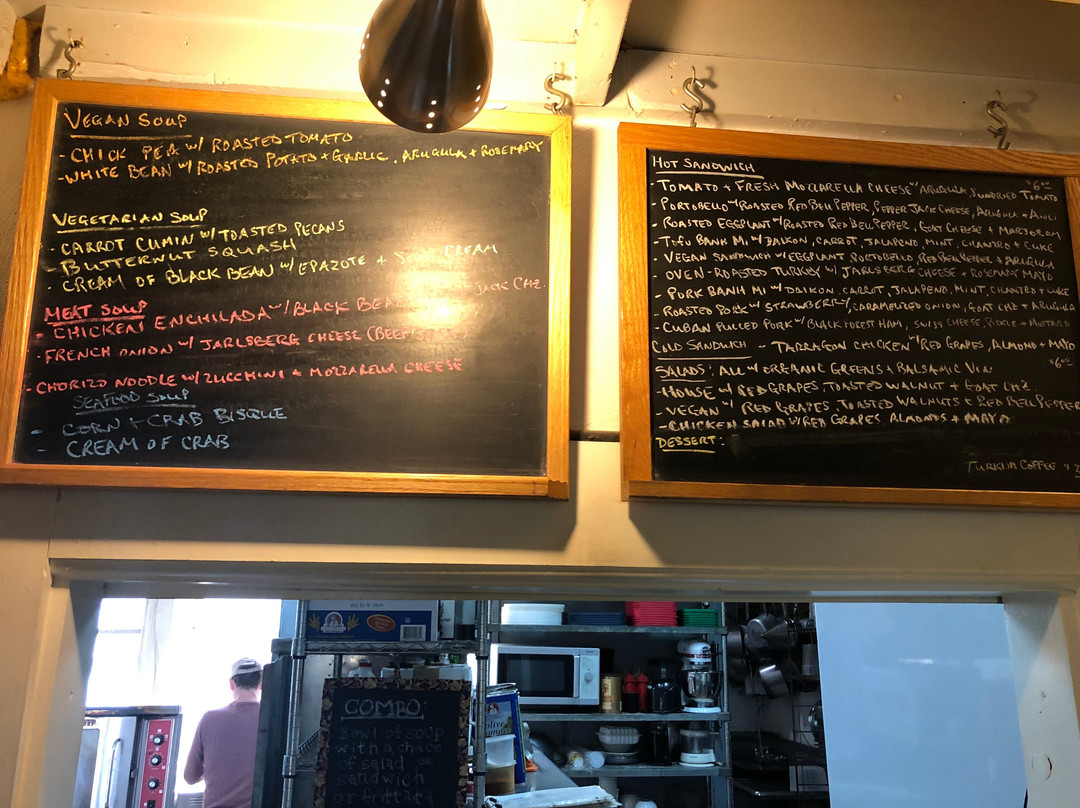 VEGAN SOUP
- CHICK PEA W/ ROASTED TOMATO
- WHITE BEAN W/ ROASTED POTATO + GARLIC, ARUGULA + ROSEMARY
VEGETARIAN SOUP
- CARROT CUMIN W/ TOASTED PECANS
- BUTTERNUT SQUASH
- CREAM OF BLACK BEAN W/ EPAZOTE + SOUR CREAM
MEAT SOUP
- CHICKEN ENCHILADA W/ BLACK BEAN JACK CHZ.
- FRENCH ONION W/ JARLSBERG CHEESE (BEEF
- CHORIZO NOODLE W/ ZUCCHINI + MOZZARELLA CHEESE
SEAFOOD SOUP
- CORN + CRAB BISQUE
- CREAM OF CRAB
HOT SANDWICH
- TOMATO + FRESH MOZZARELLA CHEESE W/ ARUGULA, SUNDRIED TOMATO
- PORTOBELLO W/ ROASTED RED BELL PEPPER, PEPPER JACK CHEESE, ARUGULA + AIOLI
- ROASTED EGGPLANT W/ ROASTED RED BELL PEPPER, GOAT CHEESE + MARJORAM
- TOFU BANH MI W/ DAIKON, CARROT, JALAPENO, MINT, CILANTRO + CUKE
- VEGAN SANDWICH W/ EGGPLANT PORTOBELLO, RED BELL PEPPER + ARUGULA
- OVEN-ROASTED TURKEY W/ JARLSBERG CHEESE + ROSEMARY MAYO
- PORK BANH MI W/ DAIKON, CARROT, JALAPENO, MINT, CILANTRO + CUKE
- ROASTED PORK W/ STRAWBERRY, CARAMELIZED ONION, GOAT CHZ + ARUGULA
- CUBAN PULLED PORK W/ BLACK FOREST HAM, SWISS CHEESE, PICKLE + MUSTARD
COLD SANDWICH - TARRAGON CHICKEN W/ RED GRAPES, ALMOND + MAYO
SALADS: ALL W/ ORGANIC GREENS + BALSAMIC VIN
- HOUSE W/ RED GRAPES, TOASTED WALNUT + GOAT CHZ.
- VEGAN W/ RED GRAPES, TOASTED WALNUTS + RED BELL PEPPER
- CHICKEN SALAD W/ RED GRAPES, ALMONDS + MAYO
DESSERT:
TURKISH COFFEE
COMBO:
Bowl of soup
with a choice
of salad or
sandwich
or frittata